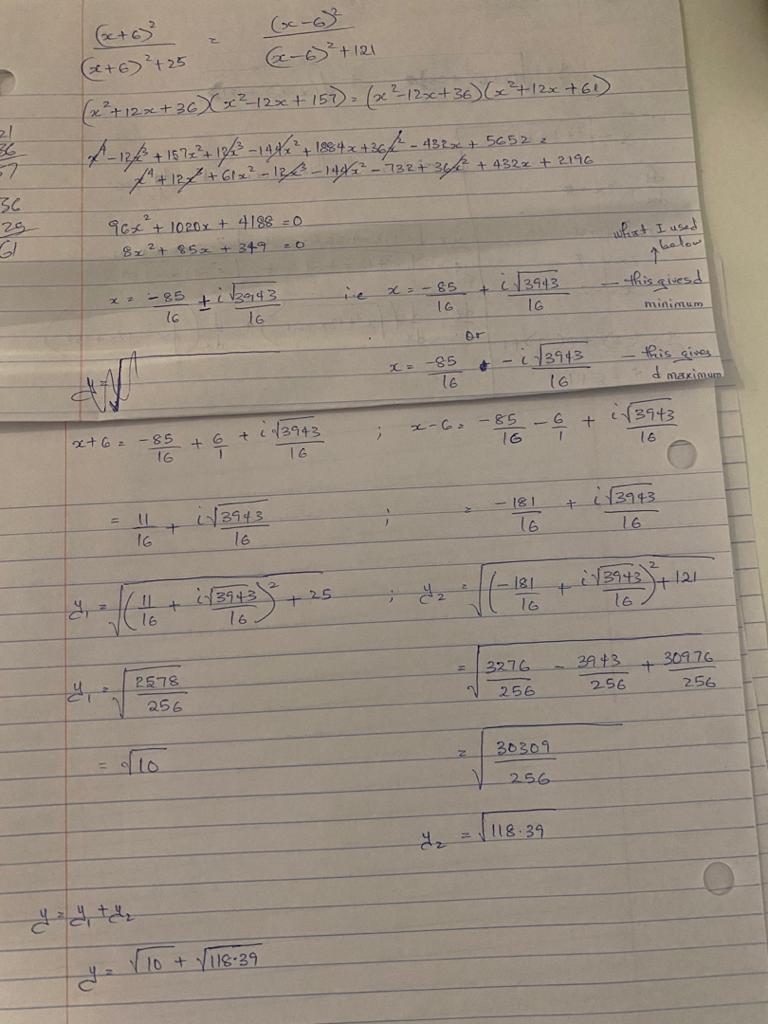 (x+6)² / ((x+6)²+25) = (x-6)² / ((x-6)²+121)
(x²+12x+36)(x²-12x+157) = (x²-12x+36)(x²+12x+61)
21
36
57
x⁴ - 12x³ + 157x² + 12x³ - 144x² + 1884x + 36x² - 432x + 5652 =
x⁴ + 12x³ + 61x² - 12x³ - 144x² - 732 + 36x² + 432x + 2196
36
25
61
96x² + 1020x + 4188 = 0
8x² + 85x + 349 = 0
what I used
below
x = -85/16 ± i√3943/16 i.e x = -85/16 + i√3943/16 — this gives d
minimum
or
x = -85/16 - i√3943/16 — this gives
d maximum
y = √
x+6 = -85/16 + 6/1 + i√3943/16 ; x-6 = -85/16 - 6/1 + i√3943/16
= 11/16 + i√3943/16 ; = -181/16 + i√3943/16
y₁ = √((11/16 + i√3943/16)² + 25) ; y₂ = √((-181/16 + i√3943/16)² + 121)
y₁ = √(2578/256) = √(3276/256 - 3943/256 + 30976/256)
= √10 = √(30309/256)
y₂ = √118.39
y = y₁ + y₂
y = √10 + √118.39